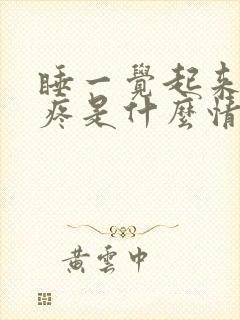 睡一覺起來
疼是什麼情
黃雲中